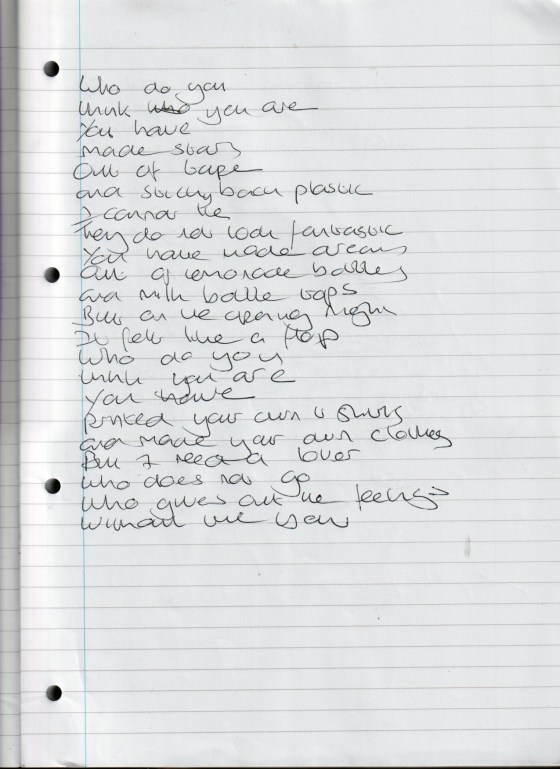 Who do you
think who you are
You have
made stars
Out of tape
and sticky back plastic
I cannot lie
They do not look fantastic
You have made dreams
Out of lemonade bottles
and milk bottle tops
But on the opening night
It felt like a flop
Who do you
think you are
You have
printed your own t shirts
and made your own clothes
But I need a lover
who does not go
Who gives out the feelings
without the show